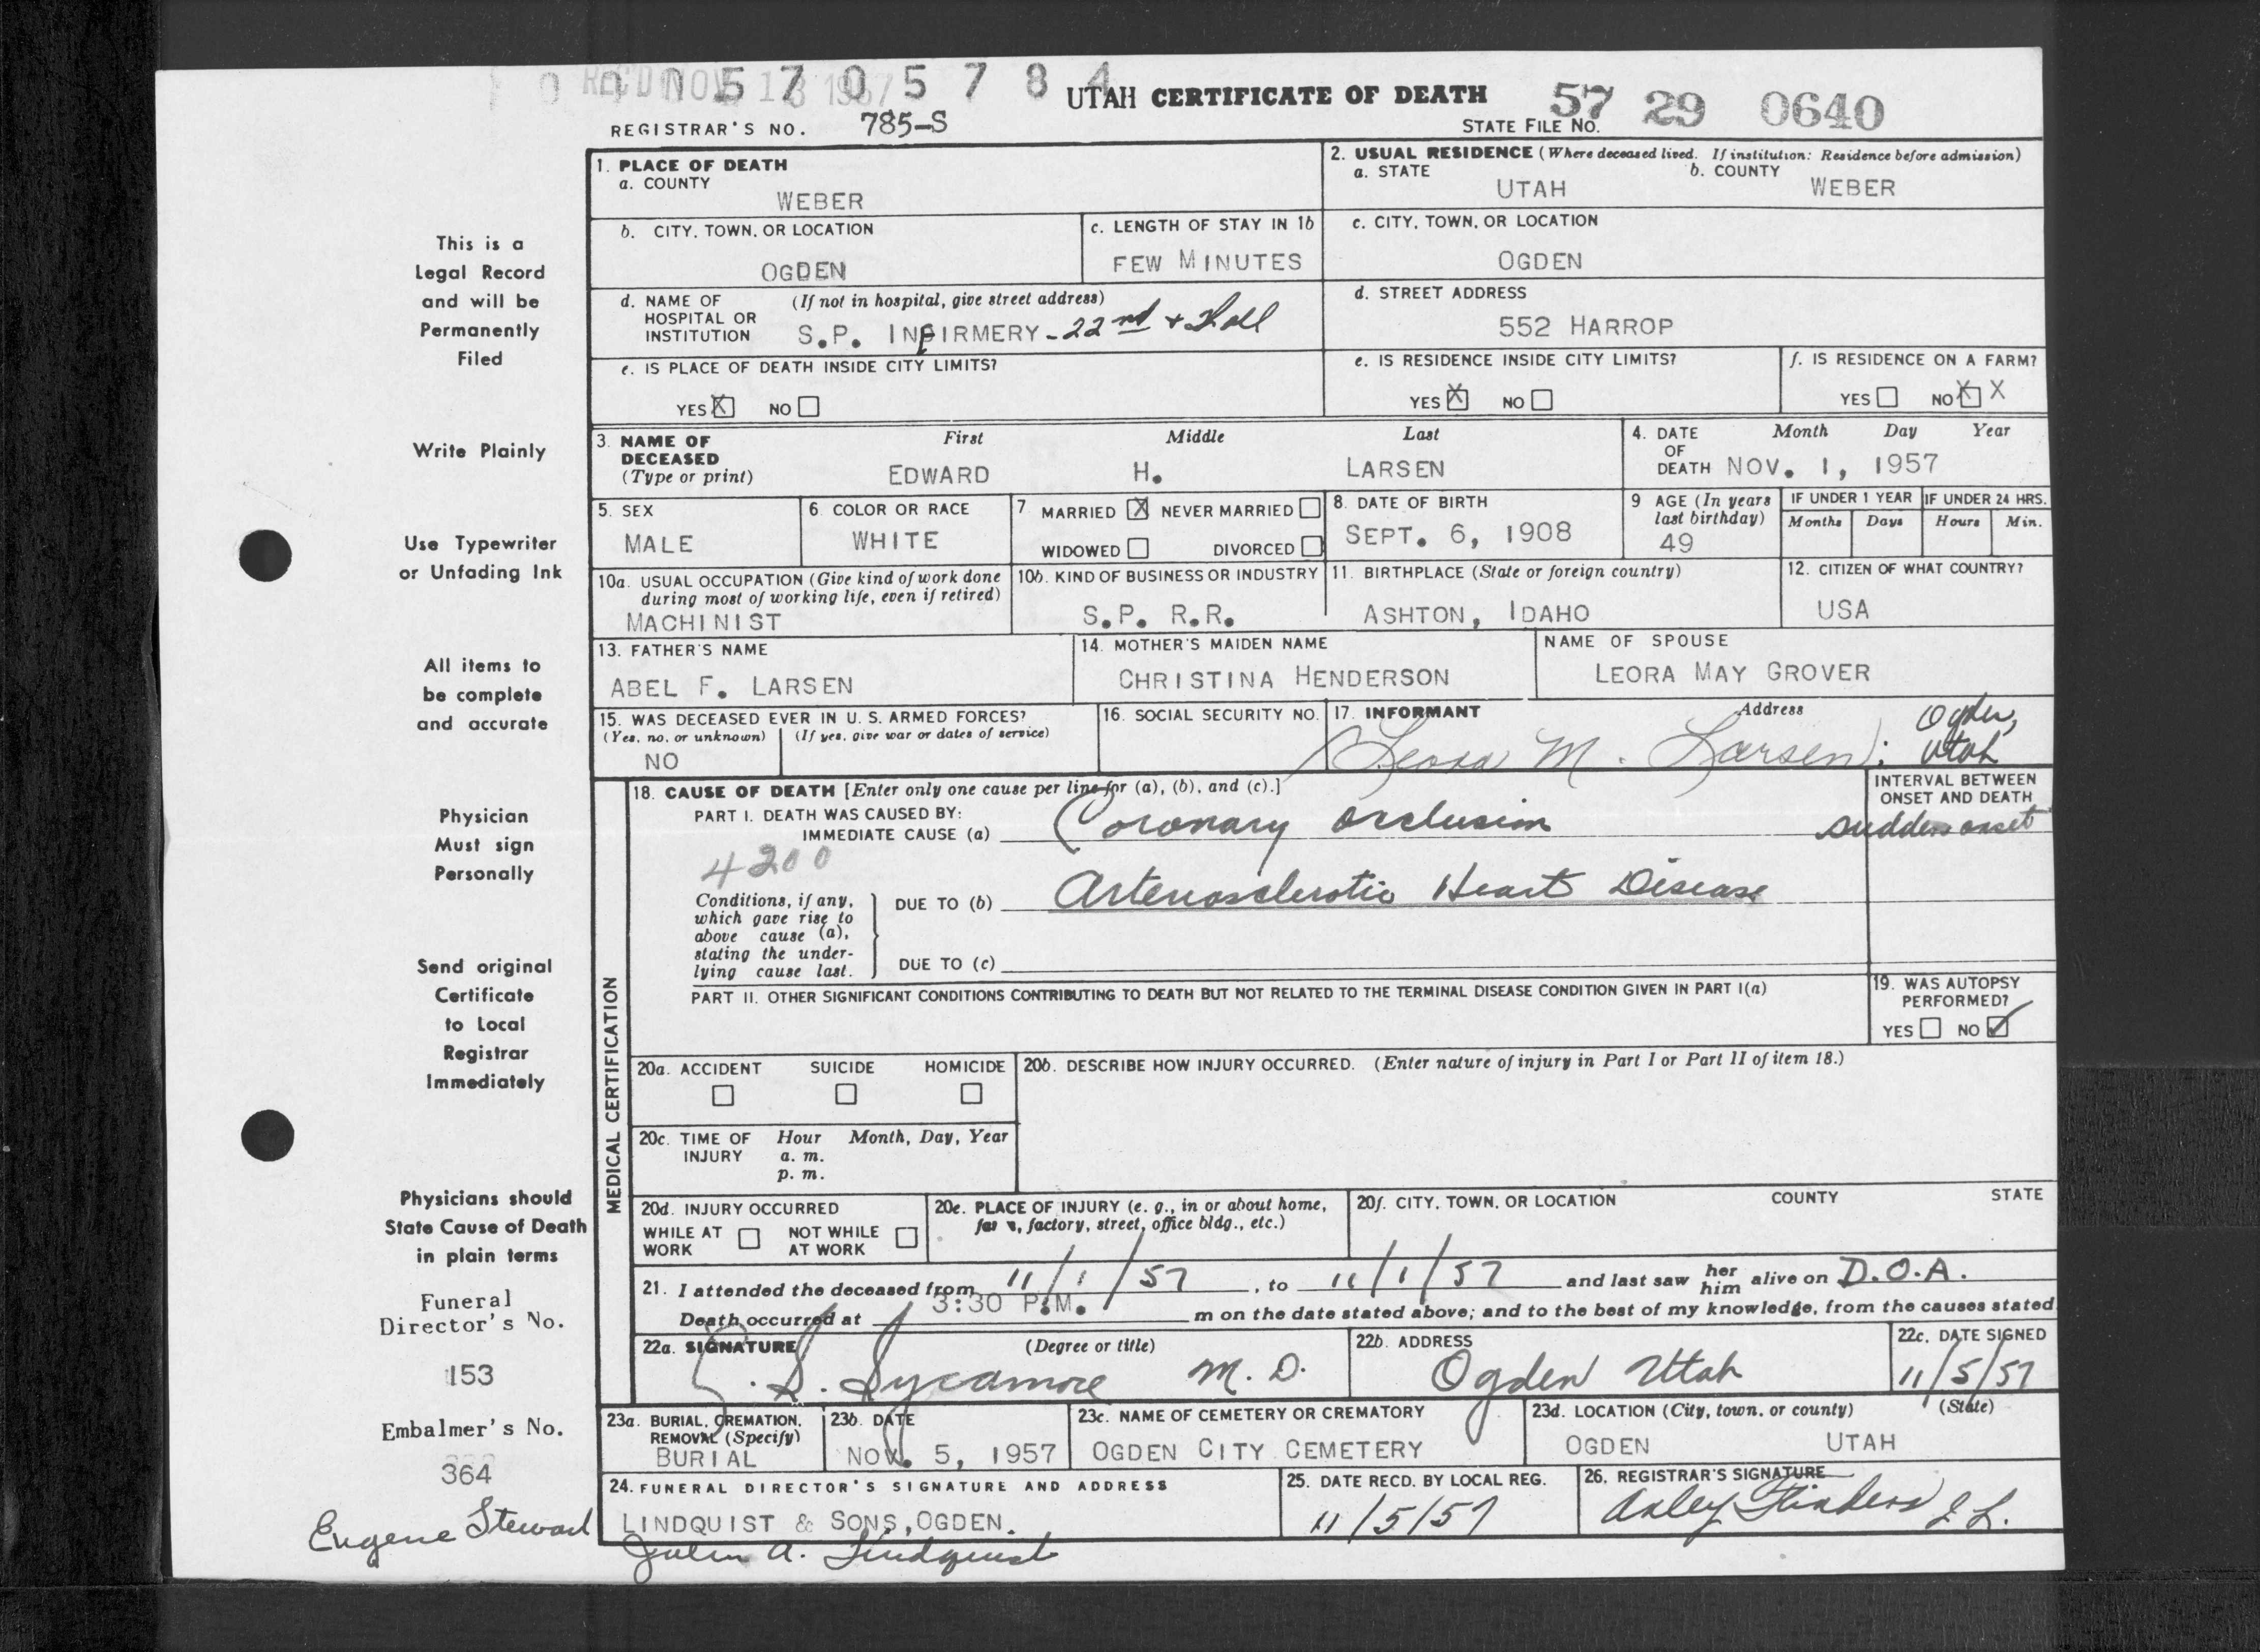 REC'D NOV 18 1957
0 0 0 5 7 0 5 7 8 4
UTAH CERTIFICATE OF DEATH
57 29 0640
REGISTRAR'S NO. 785-S
STATE FILE NO.
1. PLACE OF DEATH
a. COUNTY
WEBER
2. USUAL RESIDENCE (Where deceased lived. If institution: Residence before admission)
a. STATE b. COUNTY
UTAH WEBER
b. CITY, TOWN, OR LOCATION
OGDEN
c. LENGTH OF STAY IN 1b
FEW MINUTES
c. CITY, TOWN, OR LOCATION
OGDEN
d. NAME OF (If not in hospital, give street address)
HOSPITAL OR
INSTITUTION S.P. INFIRMERY - 22nd +
d. STREET ADDRESS
552 HARROP
e. IS PLACE OF DEATH INSIDE CITY LIMITS?
YES X NO
e. IS RESIDENCE INSIDE CITY LIMITS?
YES X NO
f. IS RESIDENCE ON A FARM?
YES NO X X
3. NAME OF First Middle Last
DECEASED
(Type or print) EDWARD H. LARSEN
4. DATE Month Day Year
OF
DEATH NOV. 1, 1957
5. SEX
MALE
6. COLOR OR RACE
WHITE
7 MARRIED X NEVER MARRIED
WIDOWED DIVORCED
8. DATE OF BIRTH
SEPT. 6, 1908
9 AGE (In years
last birthday)
49
IF UNDER 1 YEAR IF UNDER 24 HRS.
Months Days Hours Min.
10a. USUAL OCCUPATION (Give kind of work done
during most of working life, even if retired)
MACHINIST
10b. KIND OF BUSINESS OR INDUSTRY
S.P. R.R.
11. BIRTHPLACE (State or foreign country)
ASHTON, IDAHO
12. CITIZEN OF WHAT COUNTRY?
USA
13. FATHER'S NAME
ABEL F. LARSEN
14. MOTHER'S MAIDEN NAME
CHRISTINA HENDERSON
NAME OF SPOUSE
LEORA MAY GROVER
15. WAS DECEASED EVER IN U. S. ARMED FORCES?
(Yes, no, or unknown) (If yes, give war or dates of service)
NO
16. SOCIAL SECURITY NO.
17. INFORMANT Address
Leora M. Larsen; Ogden,
Utah
MEDICAL CERTIFICATION
18. CAUSE OF DEATH [Enter only one cause per line for (a), (b), and (c).]
INTERVAL BETWEEN
ONSET AND DEATH
PART I. DEATH WAS CAUSED BY:
IMMEDIATE CAUSE (a) Coronary occlusion sudden onset
4200
Conditions, if any,
which gave rise to
above cause (a),
stating the under-
lying cause last.
DUE TO (b) Arteriosclerotic Heart Disease
DUE TO (c)
PART II. OTHER SIGNIFICANT CONDITIONS CONTRIBUTING TO DEATH BUT NOT RELATED TO THE TERMINAL DISEASE CONDITION GIVEN IN PART I(a)
19. WAS AUTOPSY
PERFORMED?
YES NO ✓
20a. ACCIDENT SUICIDE HOMICIDE
20b. DESCRIBE HOW INJURY OCCURRED. (Enter nature of injury in Part I or Part II of item 18.)
20c. TIME OF Hour Month, Day, Year
INJURY a. m.
p. m.
20d. INJURY OCCURRED
WHILE AT NOT WHILE
WORK AT WORK
20e. PLACE OF INJURY (e. g., in or about home,
farm, factory, street, office bldg., etc.)
20f. CITY, TOWN, OR LOCATION COUNTY STATE
21. I attended the deceased from 11/1/57, to 11/1/57 and last saw her him alive on D.O.A.
Death occurred at 3:30 P.M. m on the date stated above; and to the best of my knowledge, from the causes stated.
22a. SIGNATURE (Degree or title)
S. Sycamore M. D.
22b. ADDRESS
Ogden Utah
22c. DATE SIGNED
11/5/57
23a. BURIAL, CREMATION,
REMOVAL (Specify)
BURIAL
23b. DATE
NOV. 5, 1957
23c. NAME OF CEMETERY OR CREMATORY
OGDEN CITY CEMETERY
23d. LOCATION (City, town, or county) (State)
OGDEN UTAH
24. FUNERAL DIRECTOR'S SIGNATURE AND ADDRESS
LINDQUIST & SONS, OGDEN.
John A. Lindquist
25. DATE RECD. BY LOCAL REG.
11/5/57
26. REGISTRAR'S SIGNATURE
Flinders
This is a
Legal Record
and will be
Permanently
Filed
Write Plainly
Use Typewriter
or Unfading Ink
All items to
be complete
and accurate
Physician
Must sign
Personally
Send original
Certificate
to Local
Registrar
Immediately
Physicians should
State Cause of Death
in plain terms
Funeral
Director's No.
153
Embalmer's No.
364
Eugene Stewart